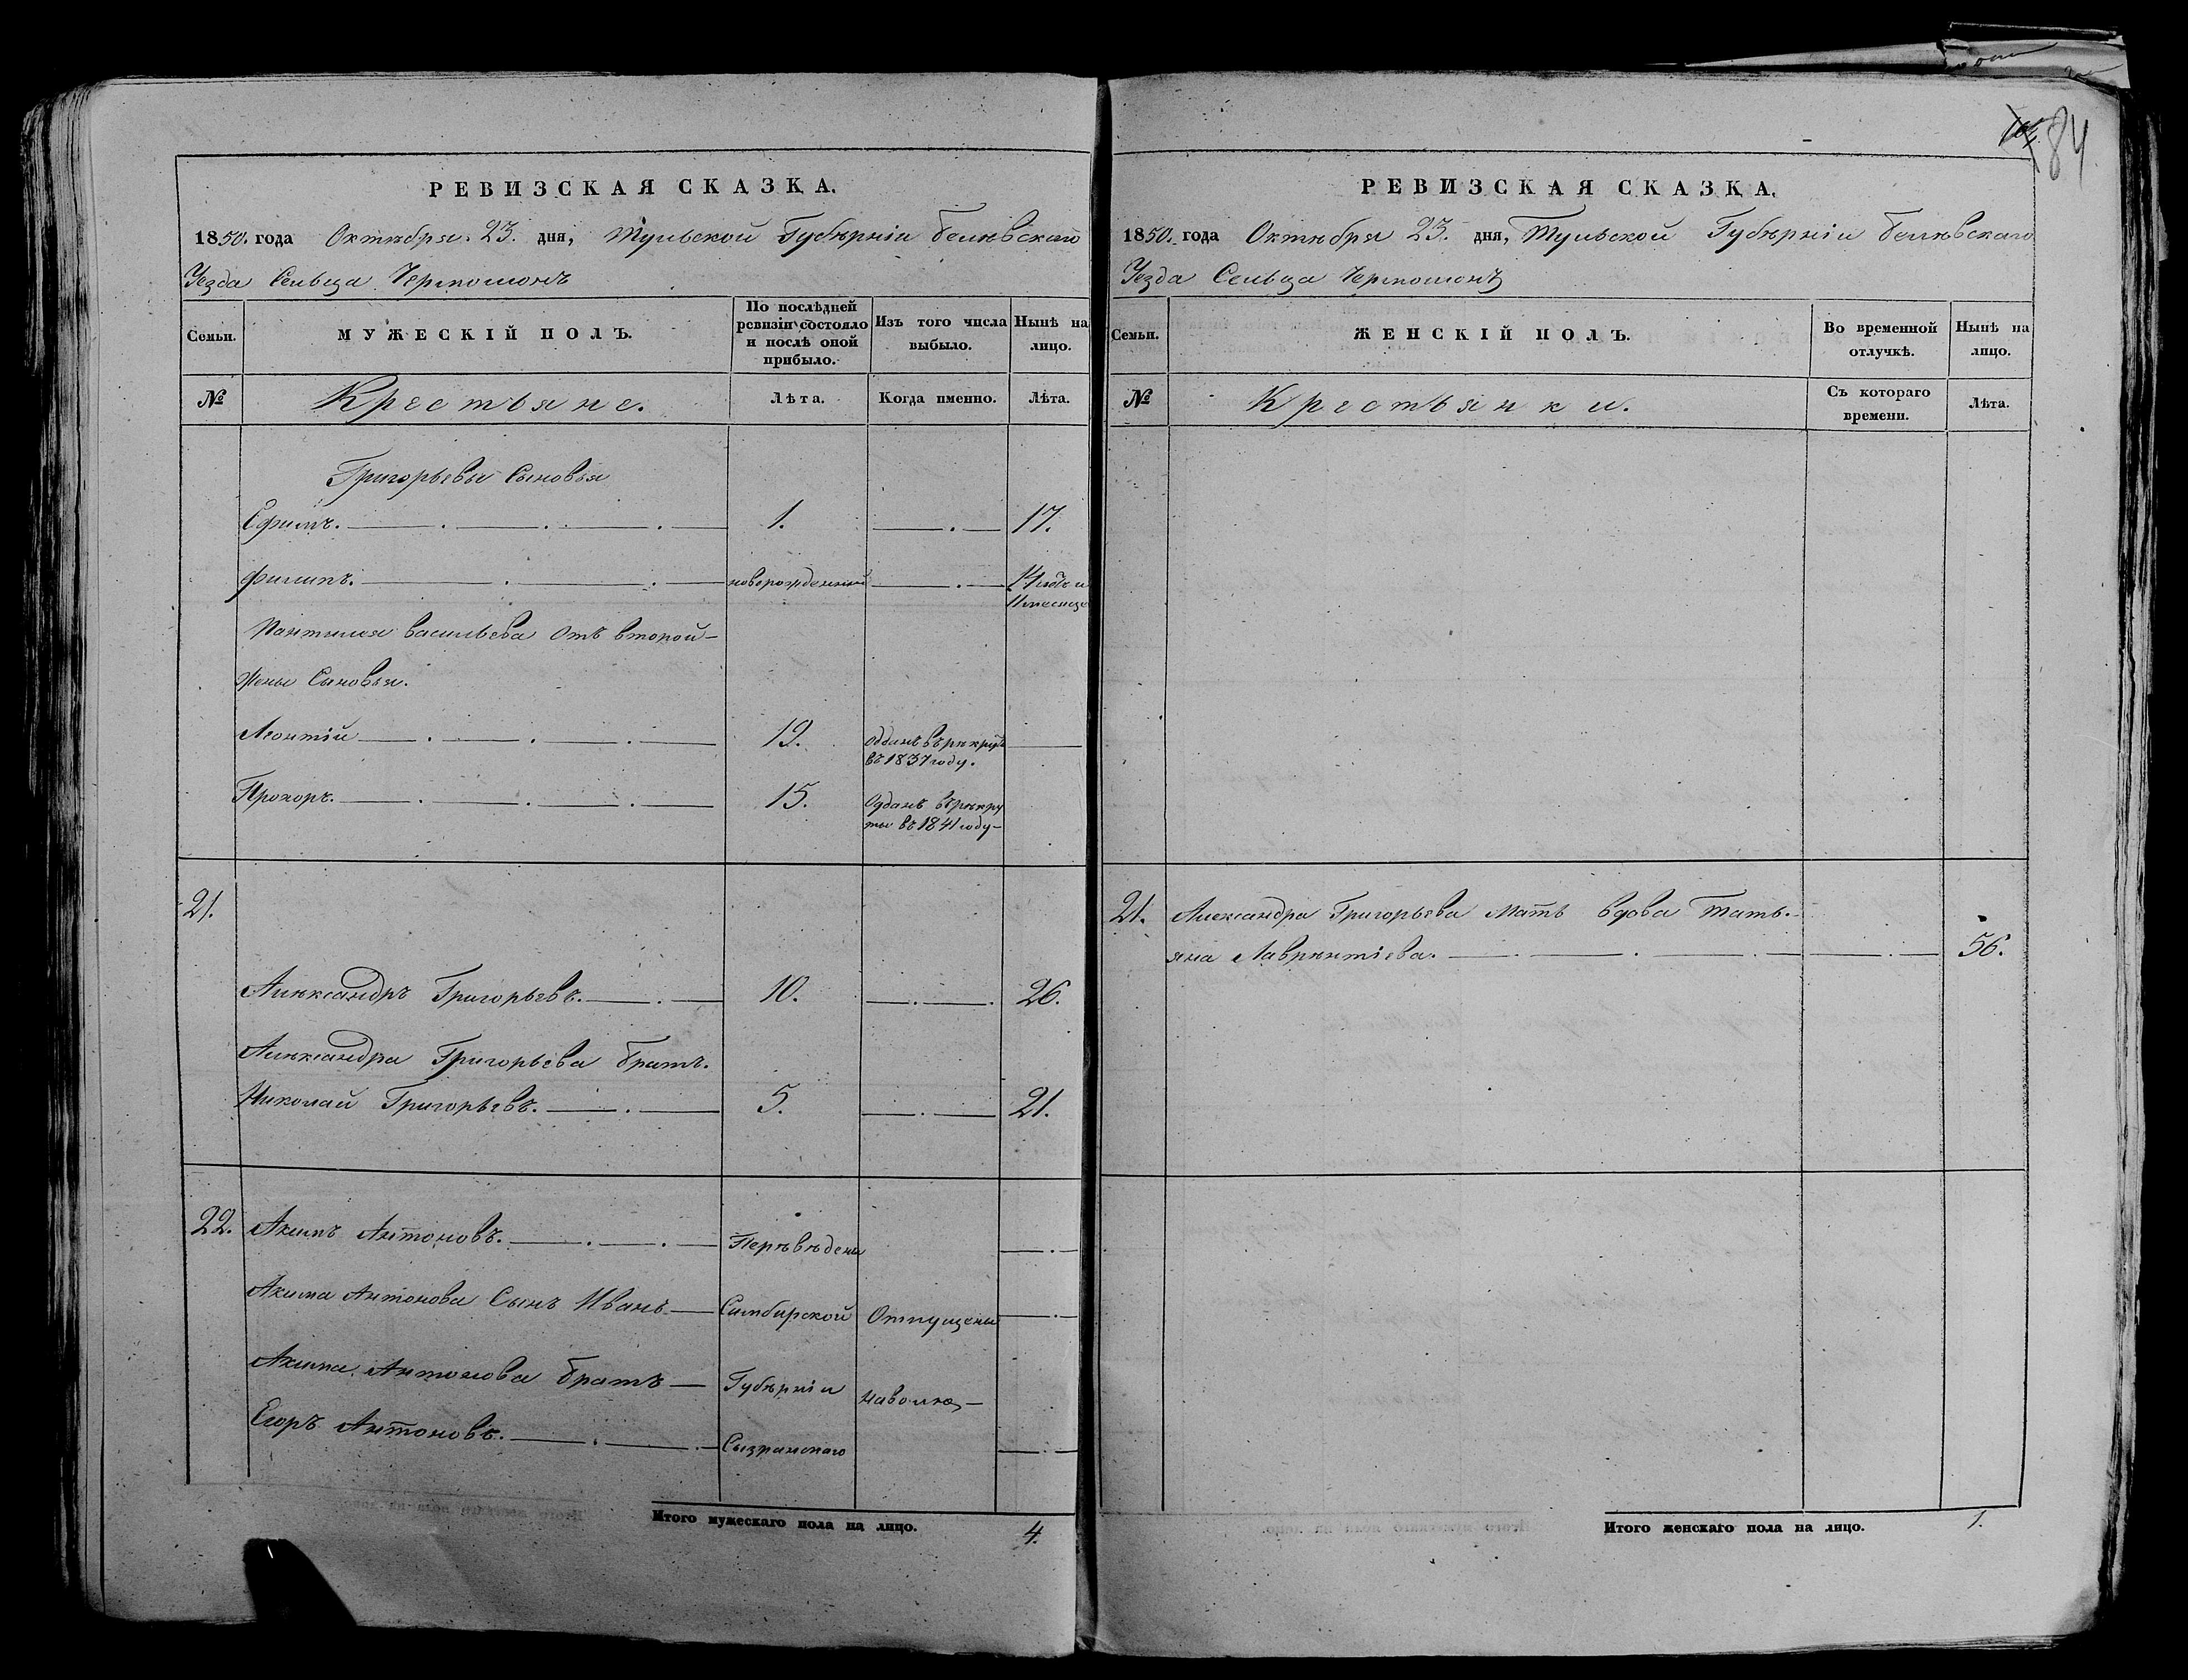 184
РЕВИЗСКАЯ СКАЗКА.
1850. года Октября. 23. дня, Тульской Губѣрніи Белѣвскаго
Уезда Сельца Чертошонъ
Семьи.
МУЖЕСКІЙ ПОЛЪ.
По послѣдней ревизіи состояло и послѣ оной прибыло.
Изъ того числа выбыло.
Нынѣ на лицо.
№
Крестьяне.
Лѣта.
Когда именно.
Лѣта.
Григорьевы Сыновья
Ефимъ. 1. 17.
Филипъ. новорожденный 14 лѣтъ и
11 месяце
Пантилея васильева Отъ второй
Жены Сыновья.
Леонтій 19. Отданъ въ рекруты
въ 1837 году.
Прохоръ. 15. Отданъ въ рекру
ты въ 1841 году
21.
Алѣксандръ Григорьевъ. 10. 26.
Алѣксандра Григорьева братъ.
Николай Григорьевъ. 5. 21.
22. Акимъ Антоновъ. Перѣвѣдены
Акима Антонова Сынъ Иванъ Симбирской Отпущены
Акима Антонова братъ Губѣрніи наволю
Егоръ Антоновъ. Сызранскаго
Итого мужескаго пола на лицо. 4.
РЕВИЗСКАЯ СКАЗКА.
1850. года Октября 23. дня, Тульской Губѣрніи Белѣвскаго
Уезда Сельца Чертошонъ
Семьи.
ЖЕНСКІЙ ПОЛЪ.
Во временной отлучкѣ.
Нынѣ на лицо.
№
Крестьянки.
Съ котораго времени.
Лѣта.
21. Александра Григорьева Мать вдова Тать-
яна Лаврѣнтіева. 56.
Итого женскаго пола на лицо. 1.